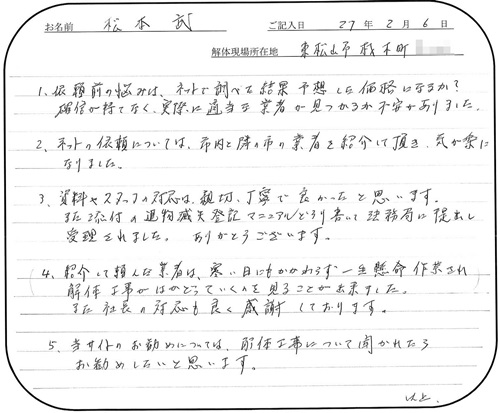 お名前 松本 武 ご記入日 27年 2月 6日
解体現場所在地 東松山市 材木町
1. 依頼前の悩みは、ネットで調べた結果予想した価格になるか?
確信が持てなく、実際に適当な業者が見つかるか不安がありました。
2. ネットの依頼については、市内と隣の市の業者を紹介して頂き、気が楽に
なりました。
3. 資料やスタッフの対応は、親切、丁寧で良かったと思います。
また添付の建物滅失登記マニュアルどうり書いて法務局に提出し
受理されました。 ありがとうございます。
4. 紹介して頼んだ業者は、寒い日にもかかわらず一生懸命作業され
解体工事がはかどっていくのを見ることが出来ました。
また社長の対応も良く感謝しております。
5. 当サイトのお勧めについては、解体工事について聞かれたら
お勧めしたいと思います。
以上.